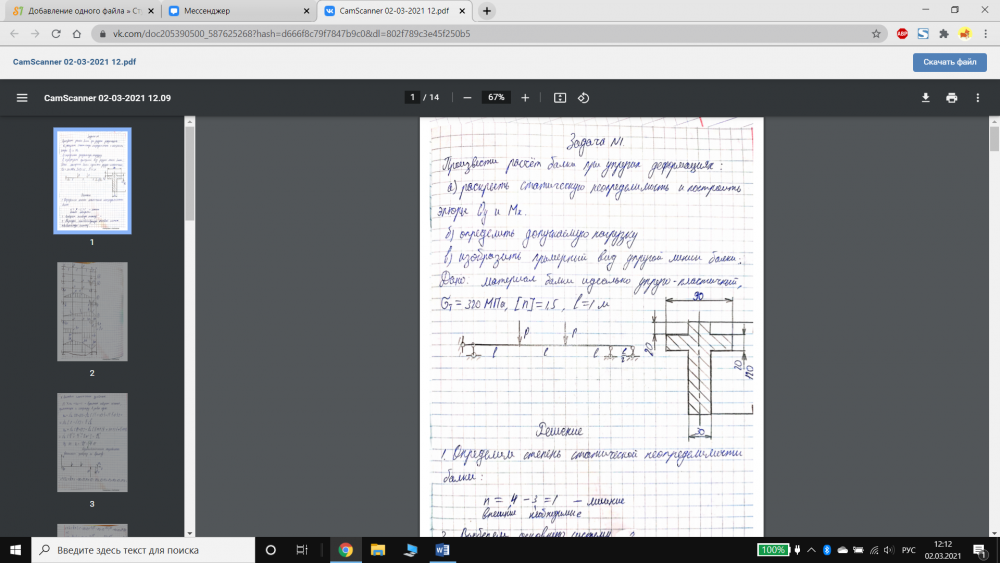 Добавление одного файла » Ст
Мессенджер
CamScanner 02-03-2021 12.pdf
vk.com/doc205390500_587625268?hash=d666f8c79f7847b9c0&dl=802f789c3e45f250b5
ABP
CamScanner 02-03-2021 12.pdf
Скачать файл
CamScanner 02-03-2021 12.09
1 / 14
67%
1
2
3
Задача №1
Произвести расчёт балки при упругих деформациях:
а) раскрыть статическую неопределимость и построить
эпюры Qy и Mx.
б) определить допускаемую нагрузку
в) изобразить примерный вид упругой линии балки.
Дано: материал балки идеально упруго-пластичный,
σт = 320 МПа, [n] = 1.5, l = 1 м
90
P
P
l
l
l
l/2
20
20
120
30
Решение
1. Определим степень статической неопределимости
балки:
n = 4 - 3 = 1 - лишние
внешние необходимые
Введите здесь текст для поиска
100%
РУС
12:12
02.03.2021
1